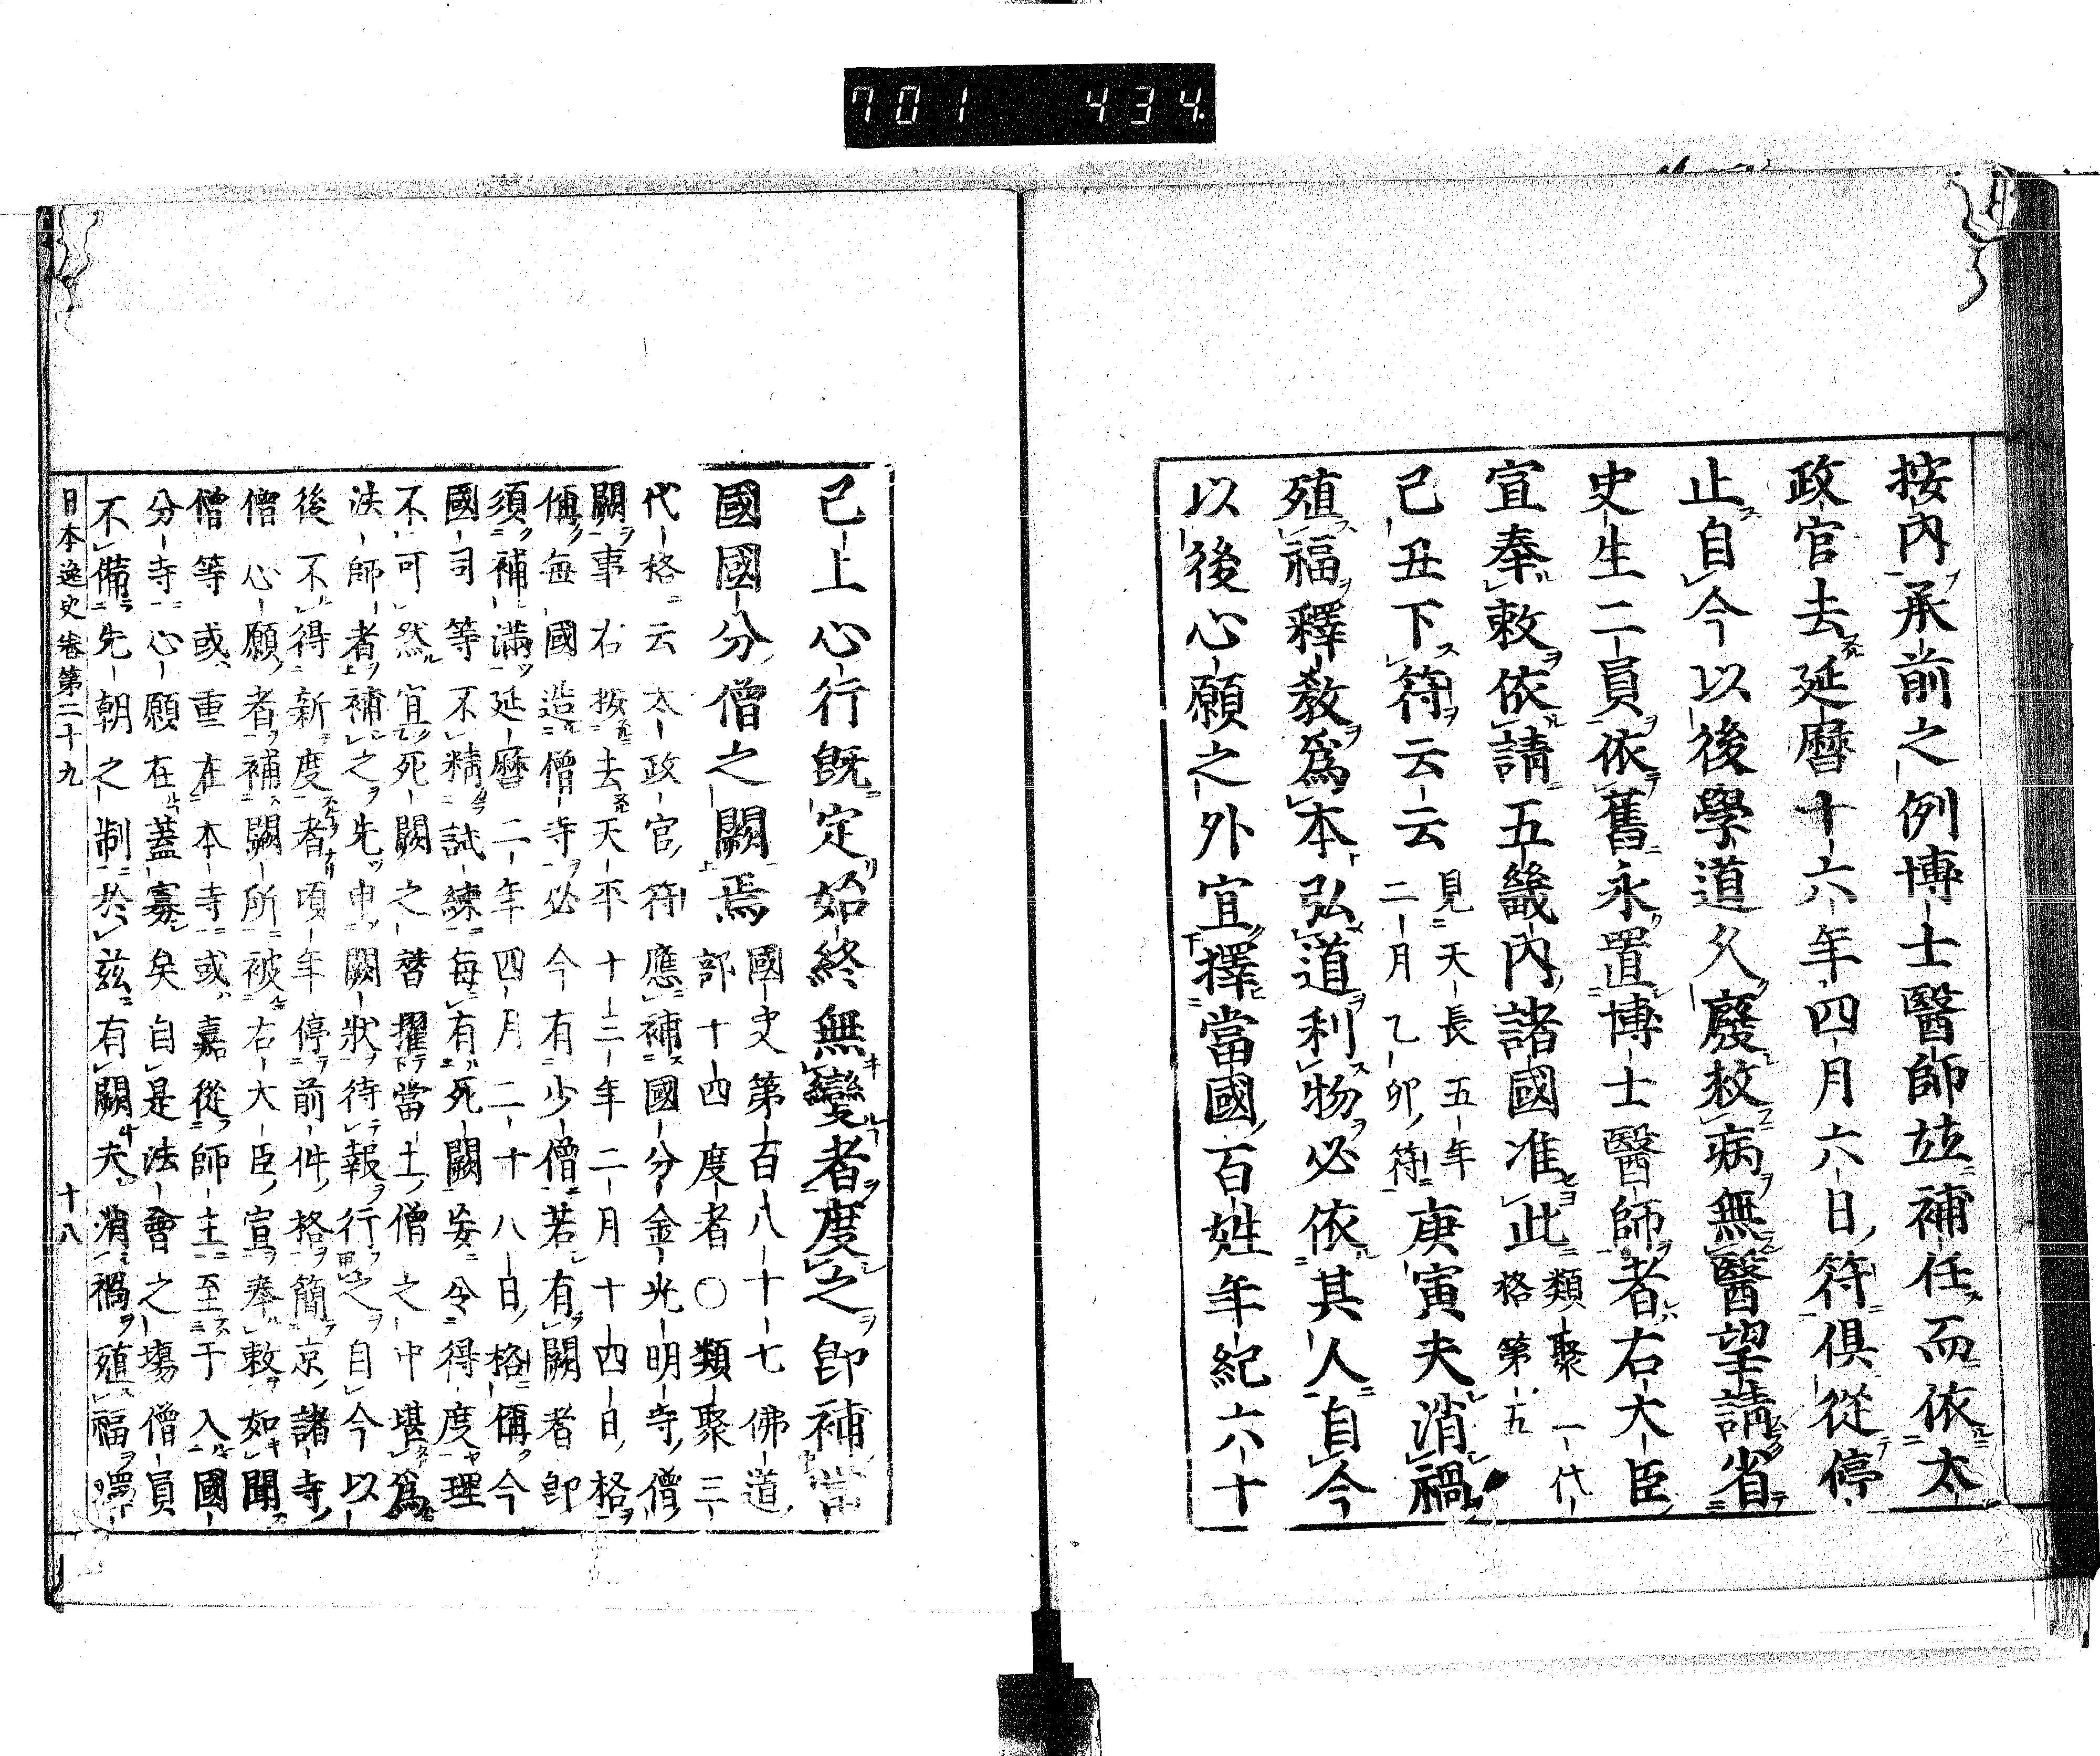 701 434
按内承前之例博士醫師竝補任而依太
政官去延曆十六年四月六日符俱從停
止自今以後學道久廢救病無醫望請省
史生二員依舊永置博士醫師者右大臣
宣奉敕依請五畿内諸國准此類聚一代
格第五
己丑下符云云見天長五年
二月乙卯符庚寅夫消禍
殖福釋教爲本弘道利物必依其人自今
以後心願之外宜擇當國百姓年紀六十
已上心行既定始終無變者度之卽補當
國國分僧之闕焉國史第百八十七佛道
部十四度者○類聚三
代格云太政官符應補國分金光明寺僧
闕事右按去天平十三年二月十四日格
偁每國造僧寺必今有少僧若有闕者卽
須補滿延曆二年四月二十八日格偁今
國司等不精試練每有死闕妄令得度理
不可然宜死闕之替擢當土僧之中堪爲
法師者補之先申闕狀待報行之自今以
後不得新度者頃年停前件格簡京諸寺
僧心願者補闕所被右大臣宣奉敕如聞
僧等或重在本寺或嘉從師主至于入國
分寺心願在蓋寡矣自是法會之場僧員
不備先朝之制於茲有闕夫消禍殖福
日本逸史卷第二十九
十八